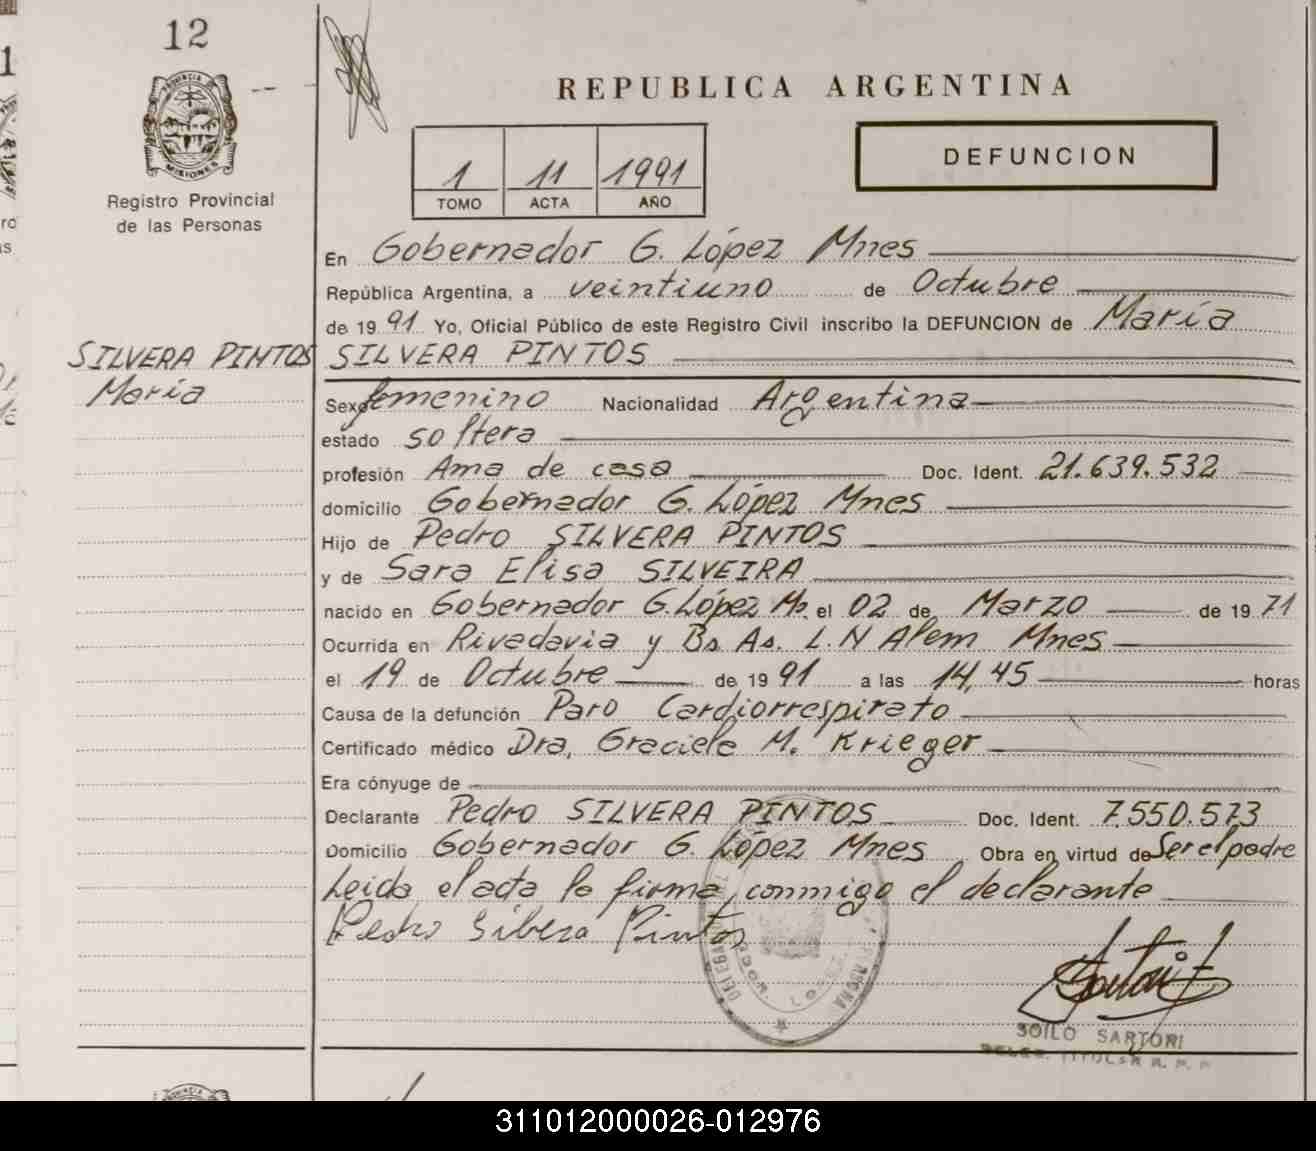 12
PROVINCIA
MISIONES
Registro Provincial
de las Personas
SILVERA PINTOS
María
REPUBLICA ARGENTINA
1 11 1991
TOMO ACTA AÑO
DEFUNCION
En Gobernador G. López Mnes
República Argentina, a veintiuno de Octubre
de 19 91 Yo, Oficial Público de este Registro Civil inscribo la DEFUNCION de María
SILVERA PINTOS
Sexo femenino Nacionalidad Argentina
estado soltera
profesión Ama de casa Doc. Ident. 21.639.532
domicilio Gobernador G. López Mnes
Hijo de Pedro SILVERA PINTOS
y de Sara Elisa SILVEIRA
nacido en Gobernador G. López Ms. el 02 de Marzo de 19 71
Ocurrida en Rivadavia y Bs As. L.N Alem Mnes
el 19 de Octubre de 19 91 a las 14,45 horas
Causa de la defunción Paro Cardiorrespirato
Certificado médico Dra, Graciela M. Krieger
Era cónyuge de
Declarante Pedro SILVERA PINTOS Doc. Ident. 7.550.573
Domicilio Gobernador G. López Mnes Obra en virtud de Ser el padre
Leida el acta la firma conmigo el declarante
Pedro Silvera Pintos
SOILO SARTORI
311012000026-012976